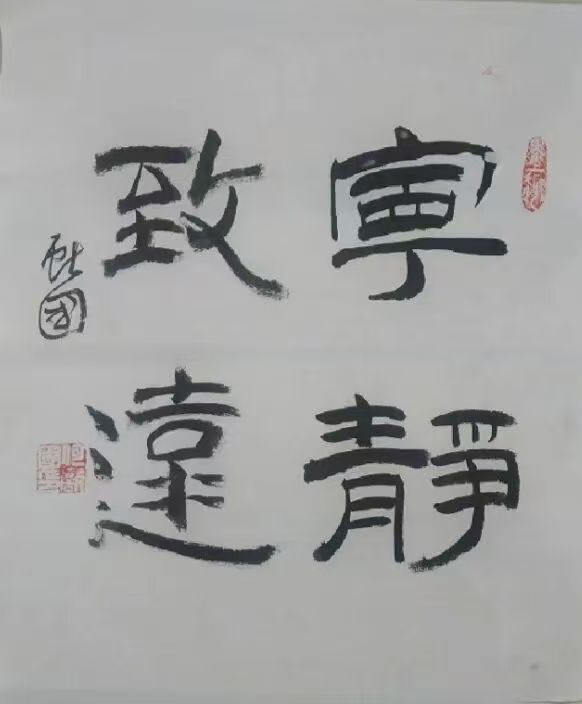 寧靜
致遠
國